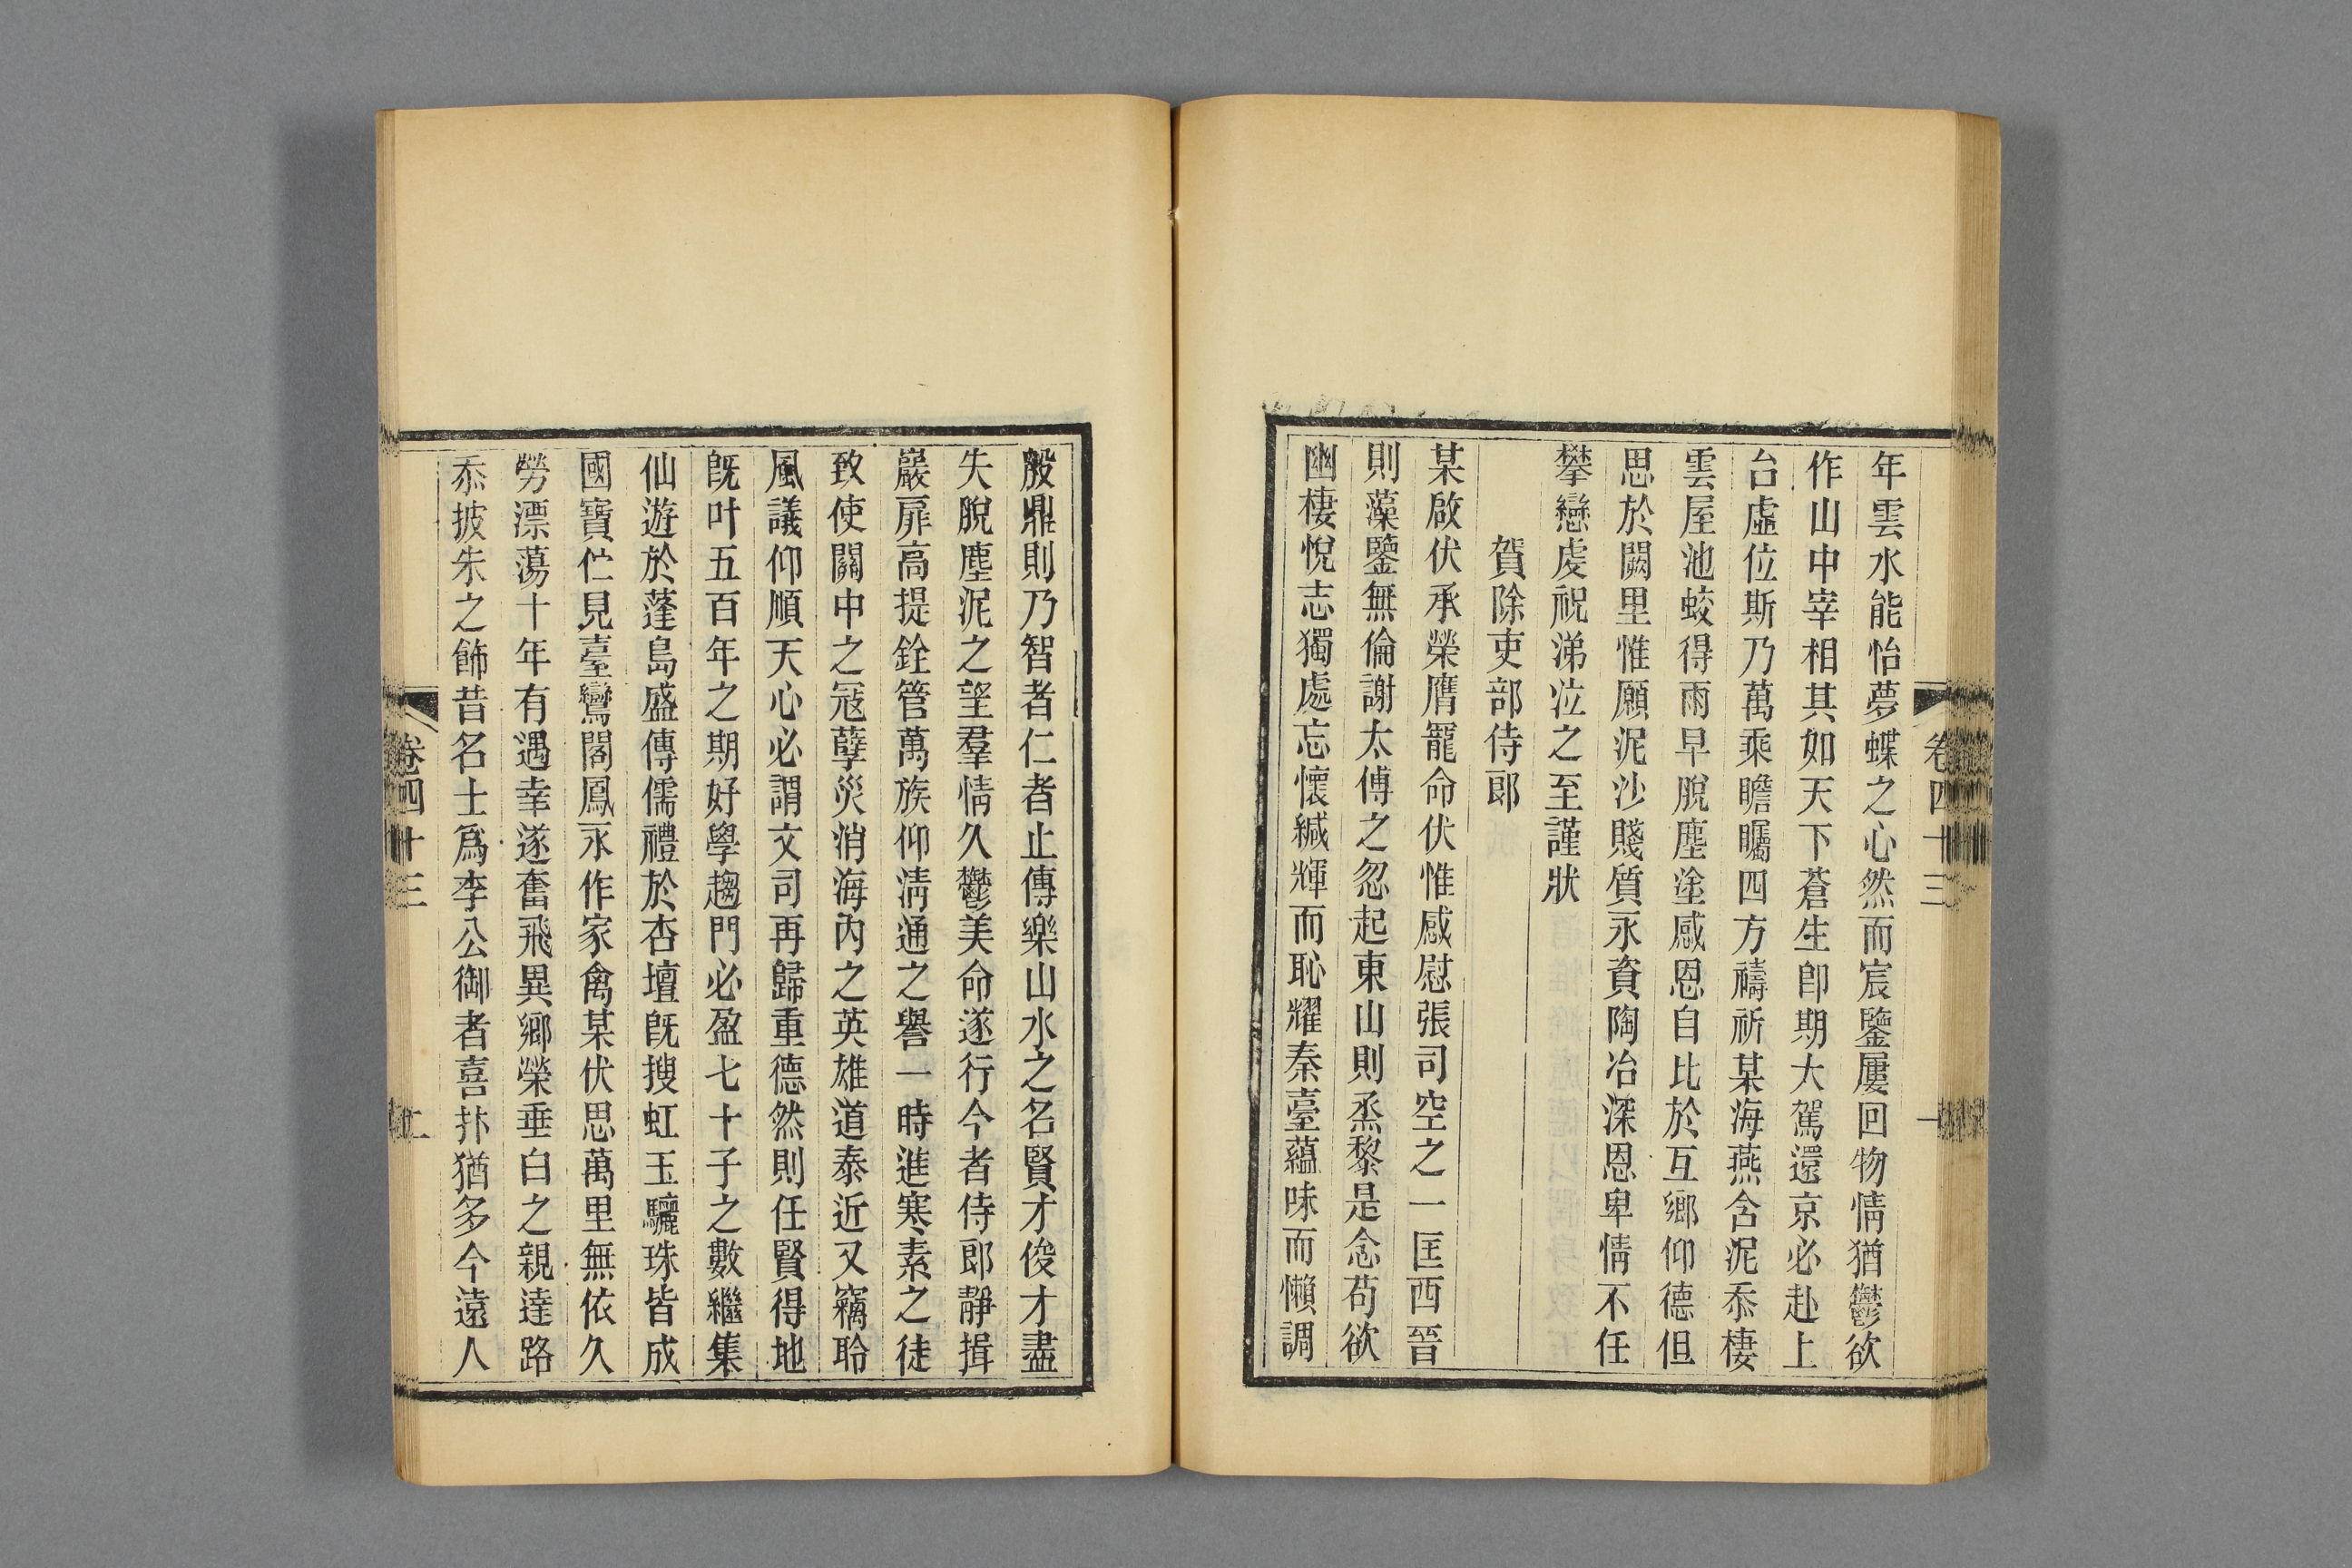 年雲水能怡夢蝶之心然而宸鑒屢回物情猶鬱欲
作山中宰相其如天下蒼生卽期大駕還京必赴上
台虛位斯乃萬乘瞻矚四方禱祈某海燕含泥忝棲
雲屋池蛟得雨早脫塵塗感恩自比於互鄉仰德但
思於闕里惟願泥沙賤質永資陶冶深恩卑情不任
攀戀虔祝涕泣之至謹狀
賀除吏部侍郎
某啟伏承榮膺寵命伏惟感慰張司空之一匡西晉
則藻鑒無倫謝太傅之忽起東山則烝黎是念苟欲
幽棲悅志獨處忘懷緘輝而恥耀秦臺蘊味而懶調
卷四十三
一
殷鼎則乃智者仁者止傳樂山水之名賢才俊才盡
失脫塵泥之望羣情久鬱美命遂行今者侍郎靜揖
巖扉高提銓管萬族仰淸通之譽一時進寒素之徒
致使關中之冦孽災消海內之英雄道泰近又竊聆
風議仰順天心必謂文司再歸重德然則任賢得地
旣叶五百年之期好學趨門必盈七十子之數繼集
仙遊於蓬島盛傳儒禮於杏壇旣搜虹玉驪珠皆成
國寶伫見臺鸞閣鳳永作家禽某伏思萬里無依久
勞漂蕩十年有遇幸遂奮飛異鄉榮垂白之親達路
忝披朱之飾昔名士爲李公御者喜抃猶多今遠人
卷四十三
二